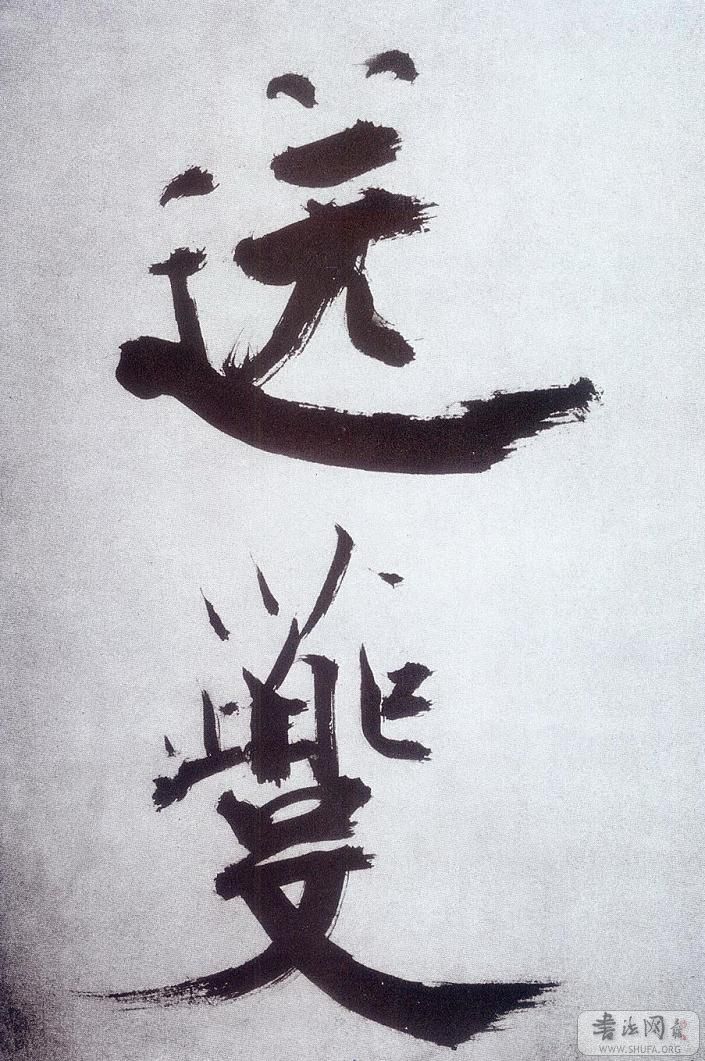 送
夔
書法网
WWW.SHUFA.ORG